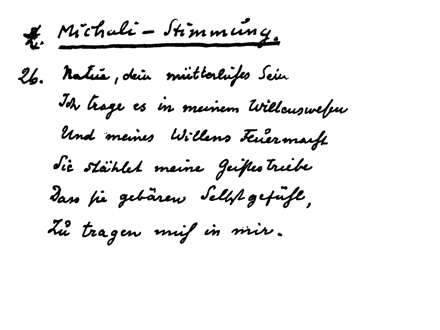 Z. Michaeli-Stimmung.
26. Natur, dein mütterliches Sein
Ich trage es in meinem Willenswesen
Und meines Willens Feuermacht
Sie stählet meine Geistestriebe
Dass sie gebären Selbstgefühl,
Zu tragen mich in mir.